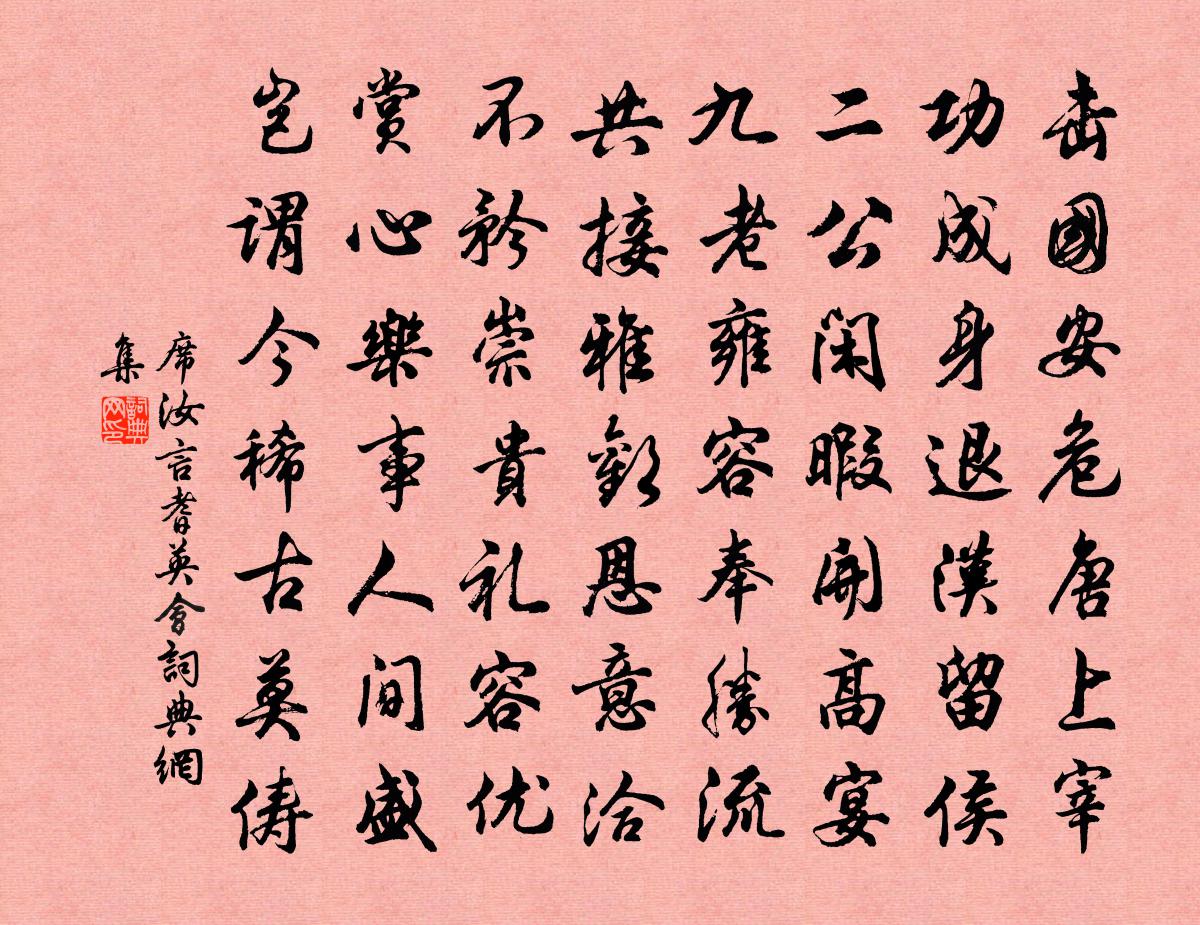 击國安危唐上宰
功成身退漢留侯
二公閑暇開高宴
九老雍容奉勝流
共接雅歡恩意洽
不矜崇貴礼容优
賞心樂事人間盛
豈謂今稀古莫儔
席汝言耆英會詞典網
集
詞典网印